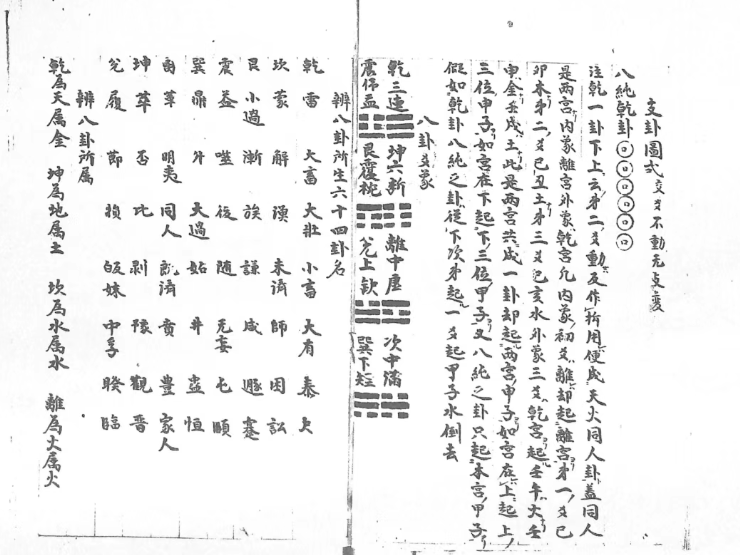 支卦圖式 交爻不動无支變
八純乾卦
注乾一卦下上云苐二爻動及作所用便成天火同人卦蓋同人
是兩宫内蒙離宫外蒙乾宫允内蒙初爻離却起離宫苐一爻己
卯木苐二爻己丑土苐三爻己亥水外蒙三爻乾宫起壬午火壬
申金壬戌土此是兩宫共成一卦却起兩宫甲子如宫在上起上
三位甲子如宫在下起下三位甲子又八純之卦只起本宫甲子
假如乾卦八純之卦從下次苐起一爻起甲子水倒去
八卦爻蒙
乾三連 坤六断 離中虚 次中滿
震仰盂 艮覆椀 兊上欽 巽下短
辨八卦所生六十四卦名
乾 雷 大畜 大壯 小畜 大有 泰 夬
坎 蒙 解 渙 未濟 師 困 訟
艮 小過 漸 旅 謙 咸 遯 蹇
震 益 噬 復 随 无妄 屯 頤
巽 鼎 升 大過 姤 井 蠱 恒
革 明夷 同人 既濟 賁 豊 家人
坤 萃 否 比 剥 豫 觀 晋
兊 履 節 損 皈妹 中孚 睽 臨
辨八卦所属
乾為天属金 坤為地属土 坎為水属水 離為火属火